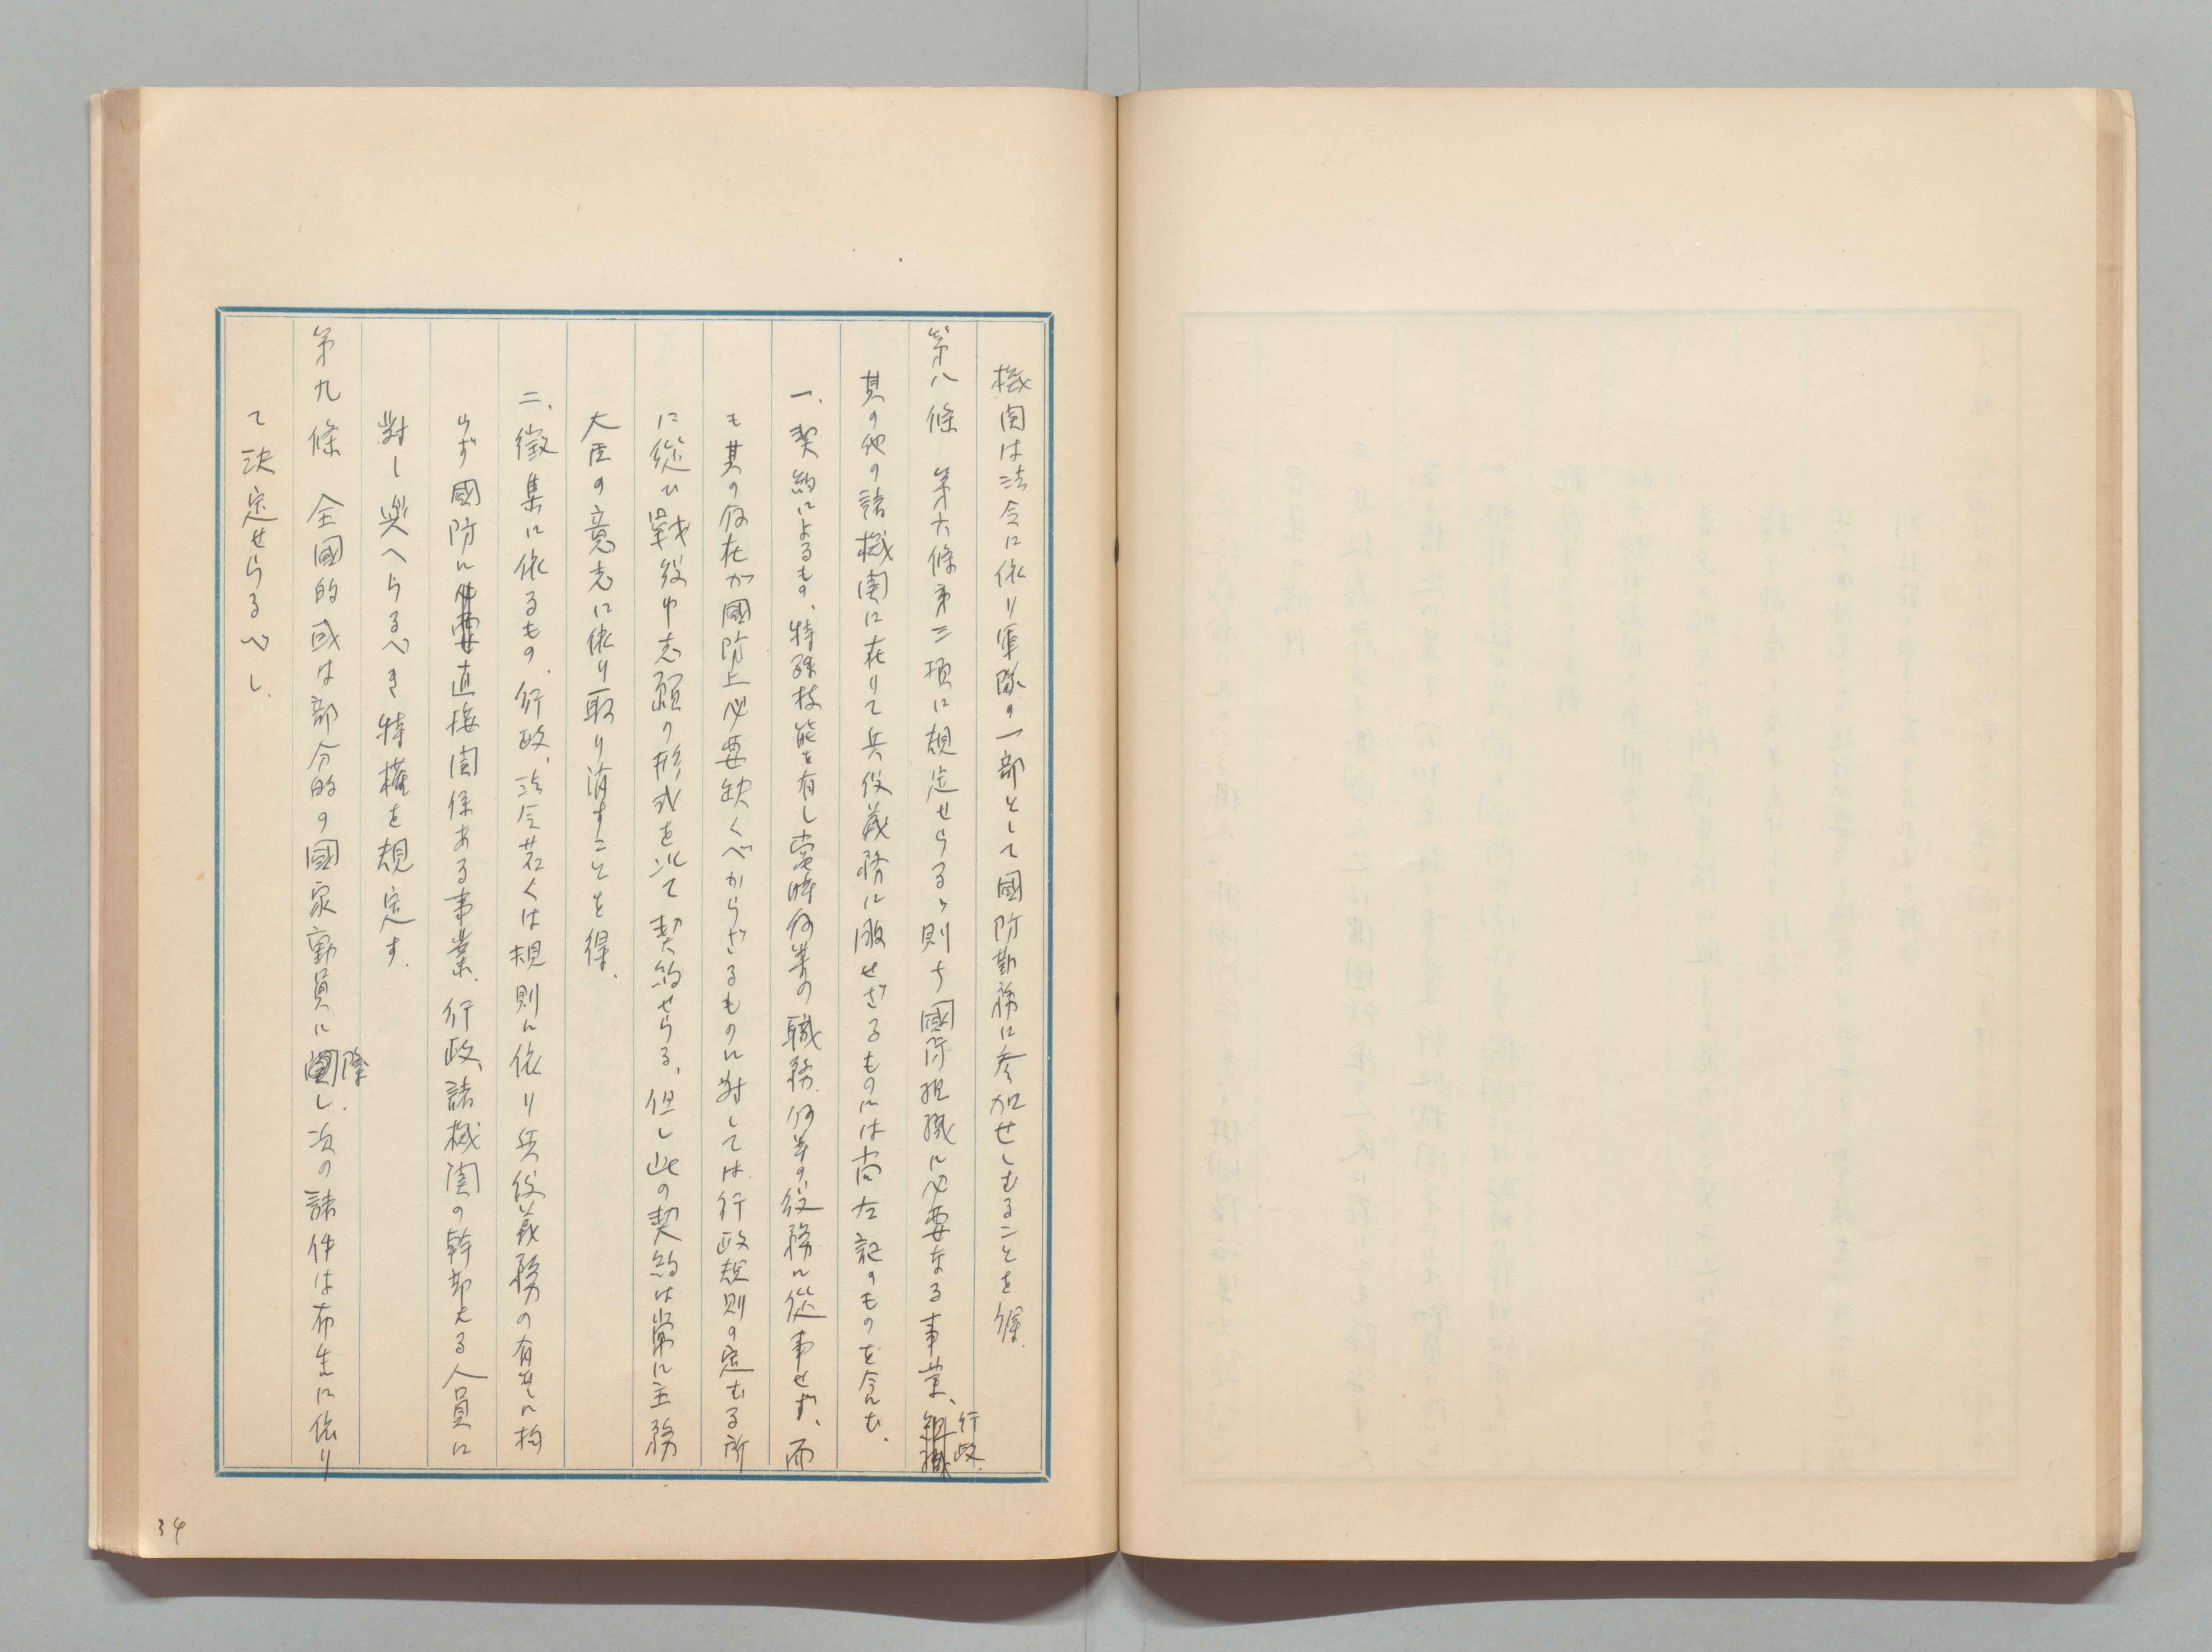 機関は法令に依り軍隊の一部として國防勤務に参加せしむることを得.
第八條 第六條第三項に規定せらるゝ則ち國防組織に必要なる事業、行政.
其の他の諸機関に在りて兵役義務に服せざるものには尚左記のものを含む.
一、契約によるもの、特殊技能を有し當時何等の職務.何等の役務に從事せず、而
も其の存在が國防上必要缺くべからざるものに対しては.行政規則の定むる所
に從ひ戰役中志願の形式を以て契約せらる、但し此の契約は常に主務
大臣の意志に依り取り消すことを得.
二、徵集に依るもの、行政、法令若くは規則に依り兵役義務の有無に拘
らず國防に直接関係ある事業.行政、諸機関の幹部たる人員に
對し與へらるべき特権を規定す.
第九條 全國的或は部分的の國家動員に際し.次の諸件は布告に依り
て決定せらるべし.
34